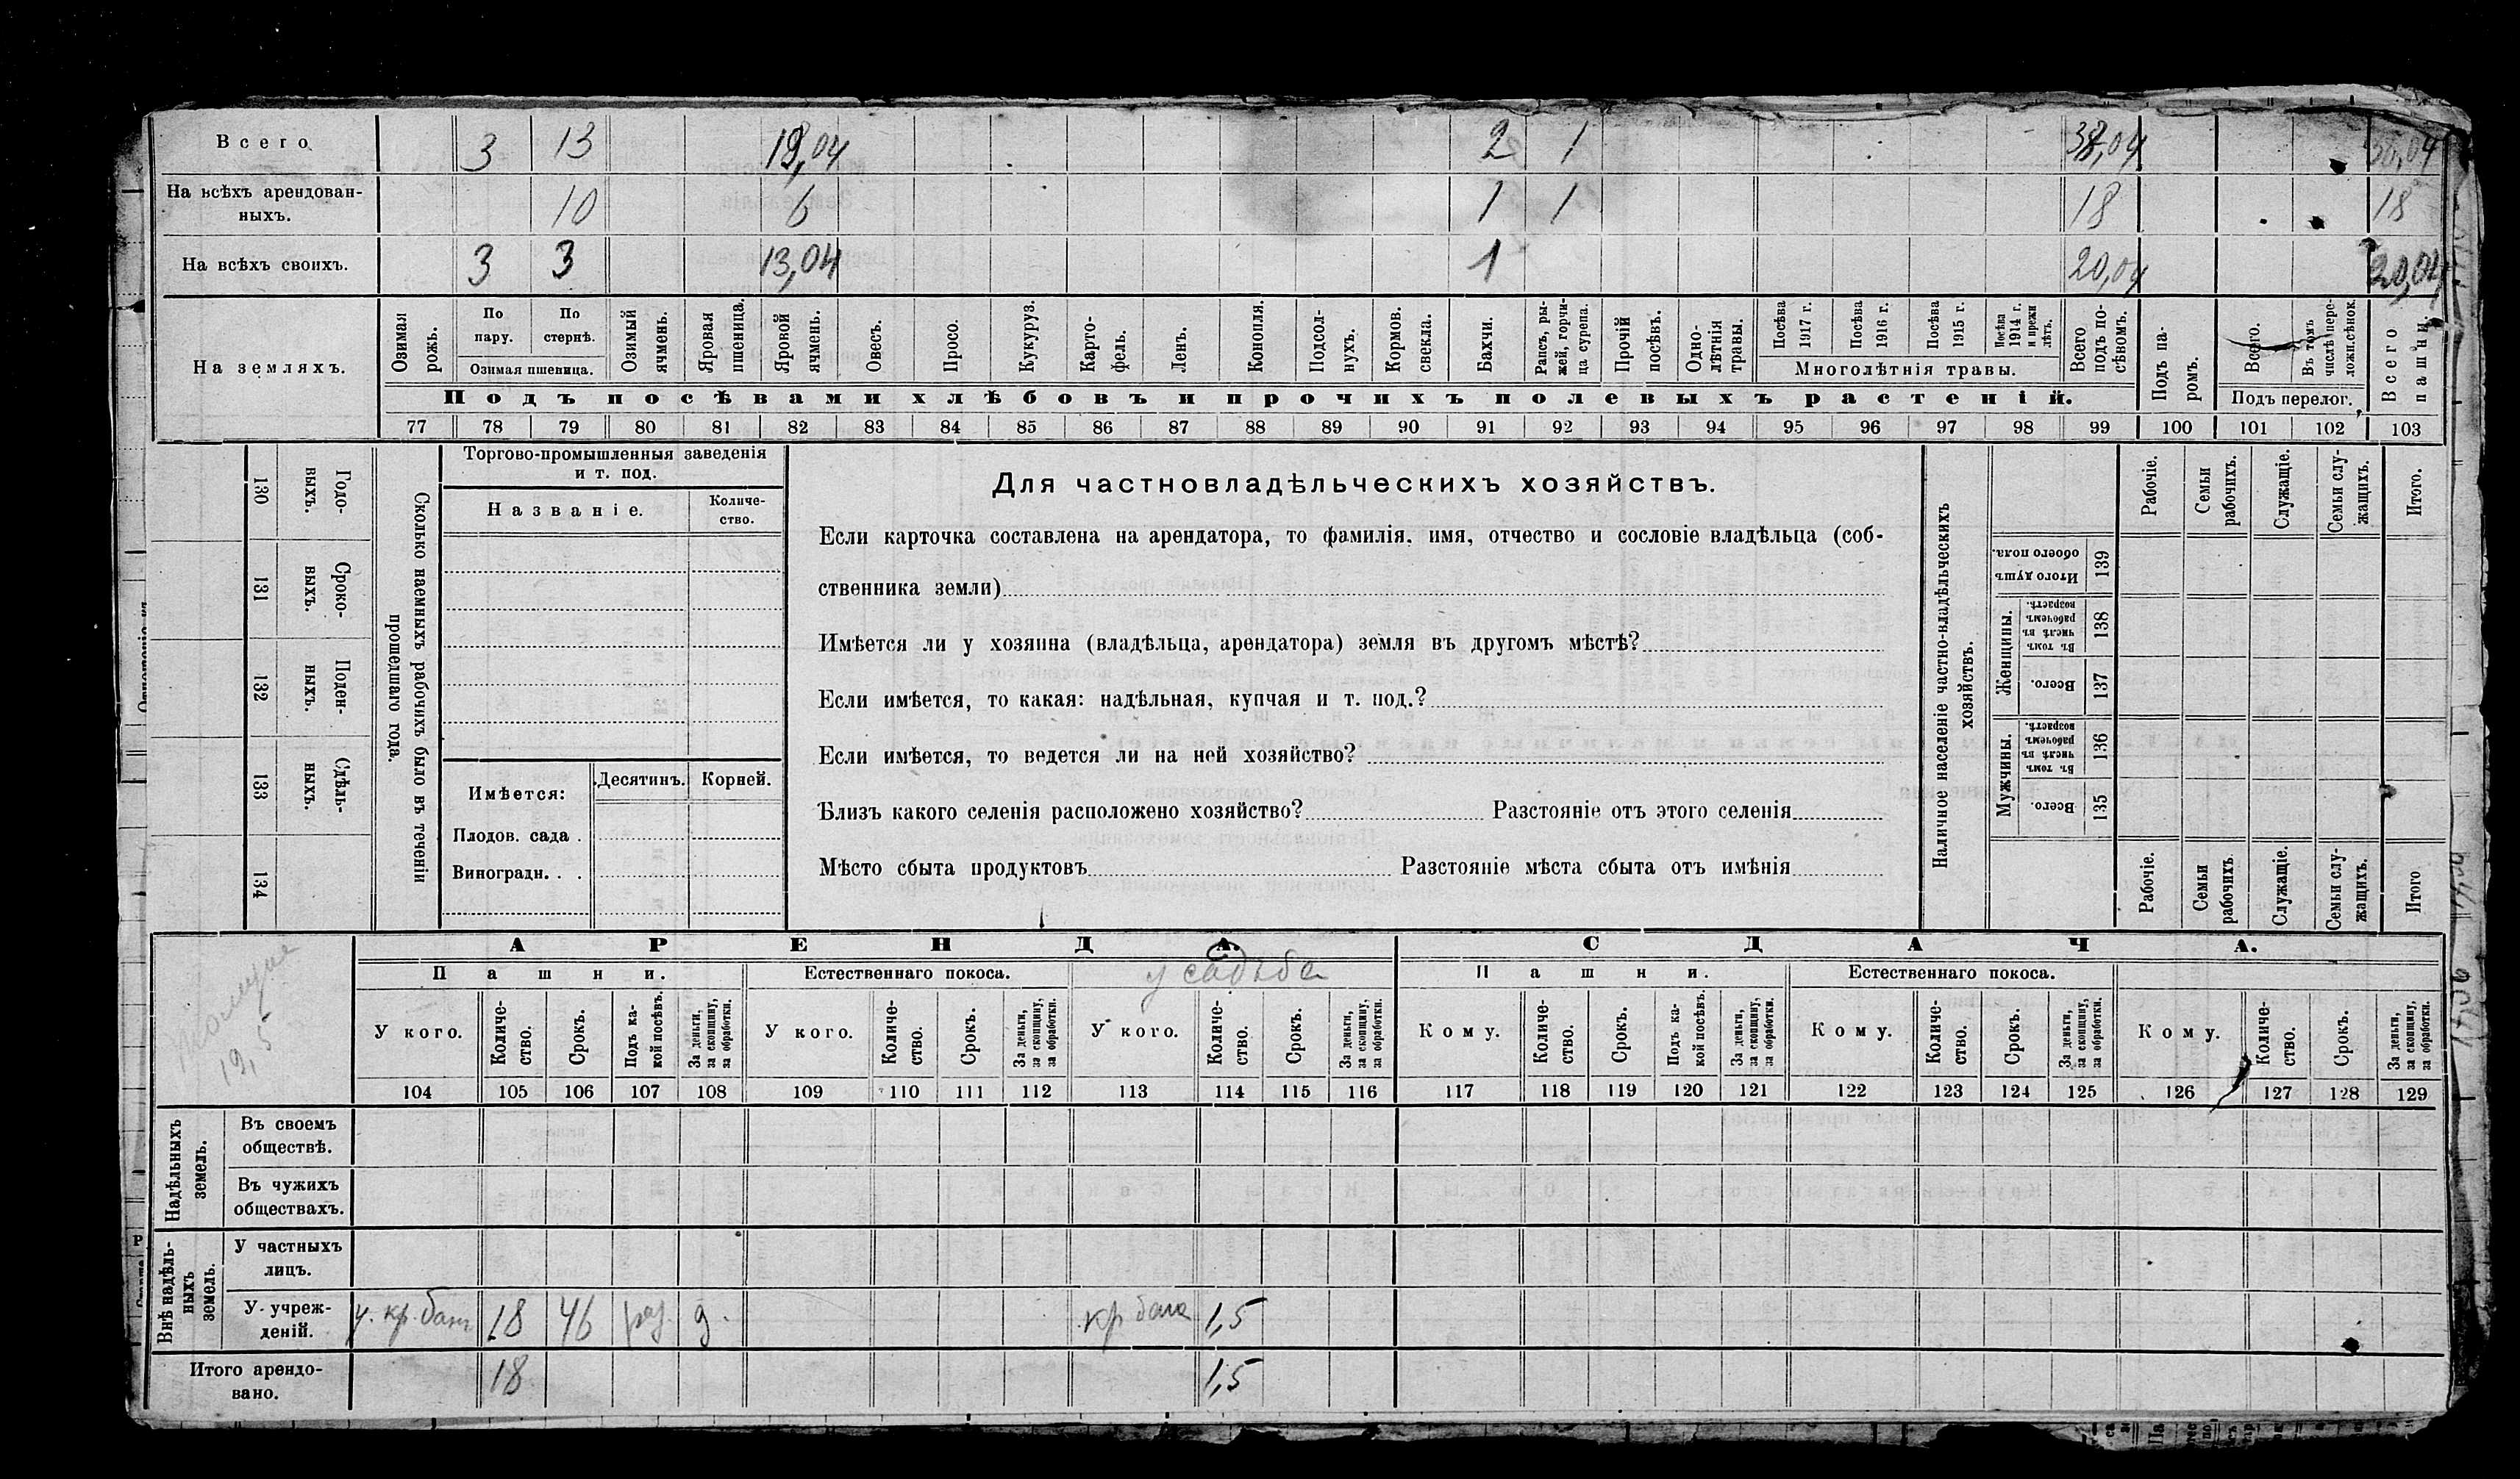 Всего 3 13 19,04 2 1 38,04 38,04
На всѣхъ арендован-
ныхъ. 10 6 1 1 18 18
На всѣхъ своихъ. 3 3 13,04 1 20,04 20,04
На земляхъ.
Озимая рожь.
По пару.
По стернѣ.
Озимая пшеница.
Озимый ячмень.
Яровая пшеница.
Яровой ячмень.
Овесъ.
Просо.
Кукуруз.
Карто-
фель.
Ленъ.
Конопля.
Подсол-
нухъ.
Кормов. свекла.
Бахчи.
Рапсъ, ры-
жей, горчи-
ца сурепа.
Прочій посѣвъ.
Одно-
лѣтнія травы.
Посѣва 1917 г.
Посѣва 1916 г.
Посѣва 1915 г.
Посѣва 1914 г. и прежн лѣтъ.
Многолѣтнія травы.
Всего подъ по-
сѣвомъ.
Подъ па-
ромъ.
Всего.
Въ томъ числѣ пере-
ложн. сѣнок.
Подъ перелог.
Всего пашни.
Подъ посѣвами хлѣбовъ и прочихъ полевыхъ растеній.
77 78 79 80 81 82 83 84 85 86 87 88 89 90 91 92 93 94 95 96 97 98 99 100 101 102 103
Сколько наемныхъ рабочихъ было въ теченіи
прошедшаго года.
Годо-
выхъ.
130
Сроко-
выхъ.
131
Поден-
ныхъ.
132
Сдѣль-
ныхъ.
133
134
Торгово-промышленныя заведенія
и т. под.
Названіе.
Количе-
ство.
Имѣется:
Десятинъ.
Корней.
Плодов. сада .
Виноградн. . .
Для частновладѣльческихъ хозяйствъ.
Если карточка составлена на арендатора, то фамилія, имя, отчество и сословіе владѣльца (соб-
ственника земли)
Имѣется ли у хозяина (владѣльца, арендатора) земля въ другомъ мѣстѣ?
Если имѣется, то какая: надѣльная, купчая и т. под.?
Если имѣется, то ведется ли на ней хозяйство?
Близъ какого селенія расположено хозяйство? Разстояніе отъ этого селенія
Мѣсто сбыта продуктовъ Разстояніе мѣста сбыта отъ имѣнія
Наличное населеніе частно-владѣльческихъ
хозяйствъ.
Рабочіе.
Семьи рабочихъ.
Служащіе.
Семьи слу-
жащихъ.
Итого.
Итого душъ обоего пола.
139
Женщины.
Въ томъ числѣ въ рабочемъ возрастѣ.
138
Всего.
137
Мужчины.
Въ томъ числѣ въ рабочемъ возрастѣ.
136
Всего.
135
Рабочіе.
Семьи рабочихъ.
Служащіе.
Семьи слу-
жащихъ.
Итого
19,5
АРЕНДА.
СДАЧА.
Пашни.
Естественнаго покоса.
усадьба
Пашни.
Естественнаго покоса.
У кого.
Количе-
ство.
Срокъ.
Подъ ка-
кой посѣвъ.
За деньги, за скопщину, за обработки.
У кого.
Количе-
ство.
Срокъ.
За деньги, за скопщину, за обработки.
У кого.
Количе-
ство.
Срокъ.
За деньги, за скопщину, за обработки.
Кому.
Количе-
ство.
Срокъ.
Подъ ка-
кой посѣвъ.
За деньги, за скопщину, за обработки.
Кому.
Количе-
ство.
Срокъ.
За деньги, за скопщину, за обработки.
Кому.
Количе-
ство.
Срокъ.
За деньги, за скопщину, за обработки.
104 105 106 107 108 109 110 111 112 113 114 115 116 117 118 119 120 121 122 123 124 125 126 127 128 129
Надѣльныхъ земель.
Въ своемъ
обществѣ.
Въ чужихъ
обществахъ.
Внѣ надѣль-
ныхъ земель.
У частныхъ
лицъ.
У учреж-
деній. у. кр. банк 18 46 раз. д. кр банк 1,5
Итого арендо-
вано. 18 1,5